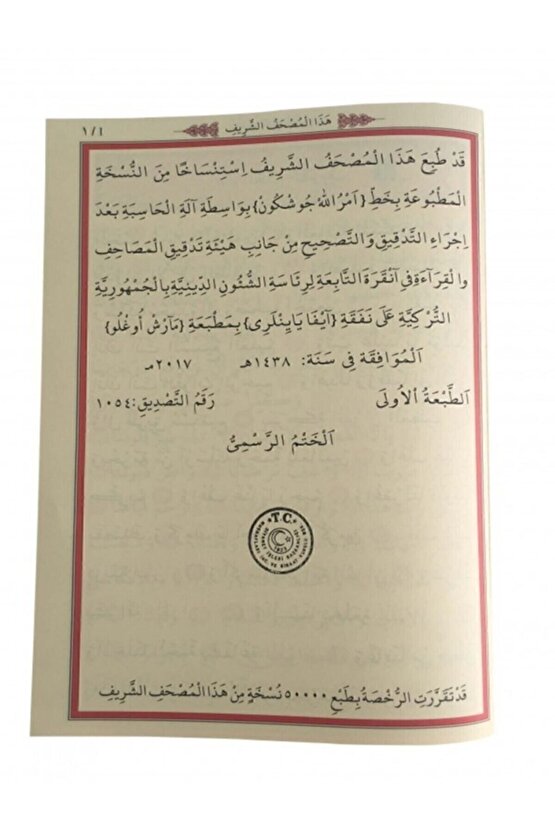 ١/٤ هٰذَا الْمُصْحَفُ الشَّرِيفِ
قَدْ طُبِعَ هٰذَا الْمُصْحَفُ الشَّرِيفُ اِسْتِنْسَاخًا مِنَ النُّسْخَةِ
الْمَطْبُوعَةِ بِخَطِّ {اَمْرُاللّٰهْ جُوشْكُونْ} بِوَاسِطَةِ آلَةِ الْحَاسِبَةِ بَعْدَ
اِجْرَاءِ التَّدْقِيقِ وَالتَّصْحِيحِ مِنْ جَانِبِ هَيْئَةِ تَدْقِيقِ الْمَصَاحِفِ
وَالْقِرَآءَةِ فِى آنْقَرَةَ التَّابِعَةِ لِرِئَاسَةِ الشُّئُونِ الدِّينِيَّةِ بِالْجُمْهُورِيَّةِ
التُّرْكِيَّةِ عَلٰى نَفَقَةِ {آيْفَا يَايِنْلَرِى} بِمَطْبَعَةِ {مَآرْشْ أُوغْلُو}
اَلْمُوَافِقَةِ فِى سَنَةِ: ١٤٣٨هـ ٢٠١٧مـ
اَلطَّبْعَةُ الْاُولَى رَقَمُ التَّصْدِيقِ: ١٠٥٤
اَلْخَتْمُ الرَّسْمِىُّ
T.C.
قَدْ تَقَرَّرَتِ الرُّخْصَةُ بِطَبْعِ ٥٠٠٠٠ نُسْخَةٍ مِنْ هٰذَا الْمُصْحَفِ الشَّرِيفِ